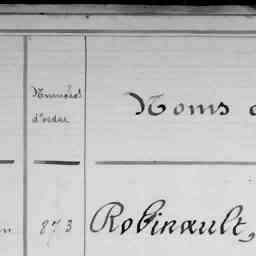 Numéros
d'ordre
Noms d
873
Robinault,